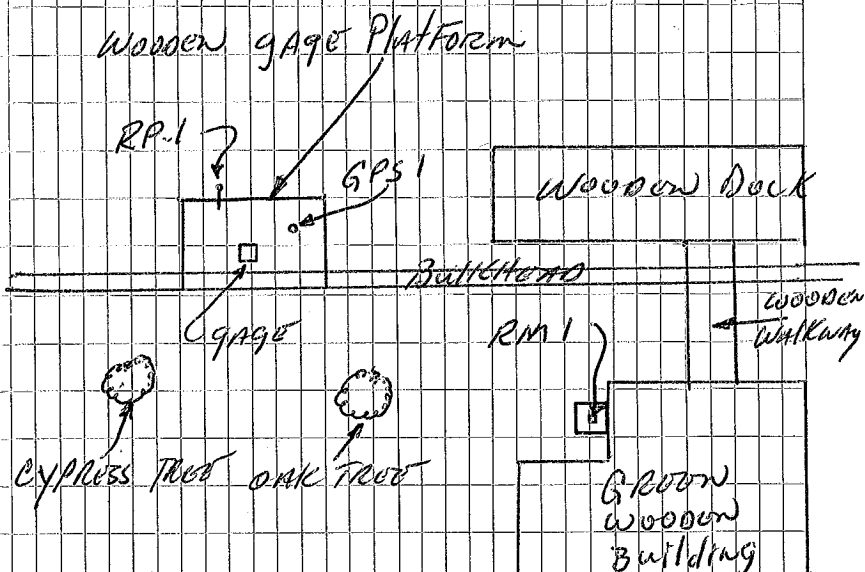 WOODEN GAGE PLATFORM
RP-1
GPS 1
WOODEN DOCK
BULKHEAD
WOODEN
WALKWAY
GAGE
RM 1
CYPRESS TREE
OAK TREE
GREEN
WOODEN
Building